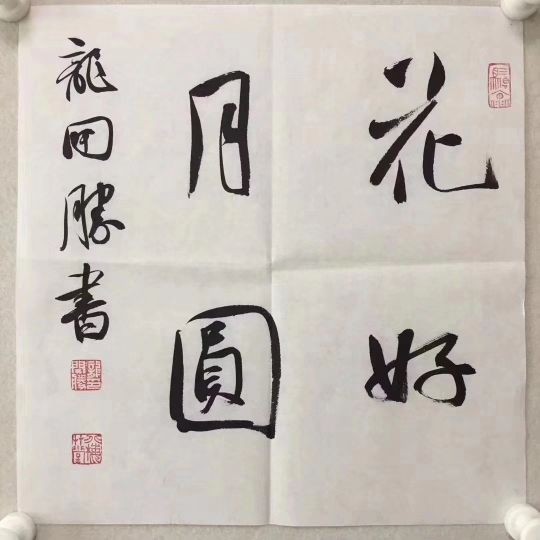 花好
月圓
龍田勝書